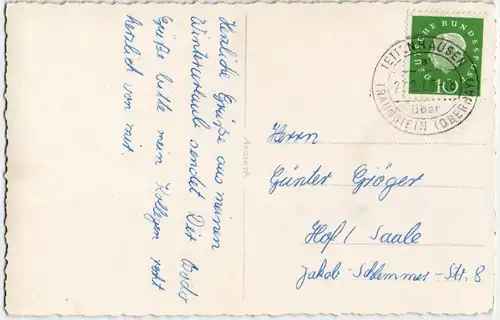 Herzliche Grüße aus meinem
Winterurlaub sendet Dir Bodo
Grüße bitte mein Kollegen recht
herzlich von mir.
ANSICHTA
DEUTSCHE BUNDESPOST
10
über
TRAUNSTEIN (OBERBAY)
Herrn
Günter Gröger
Hof/ Saale
Jakob-Schlemmer-Str. 8